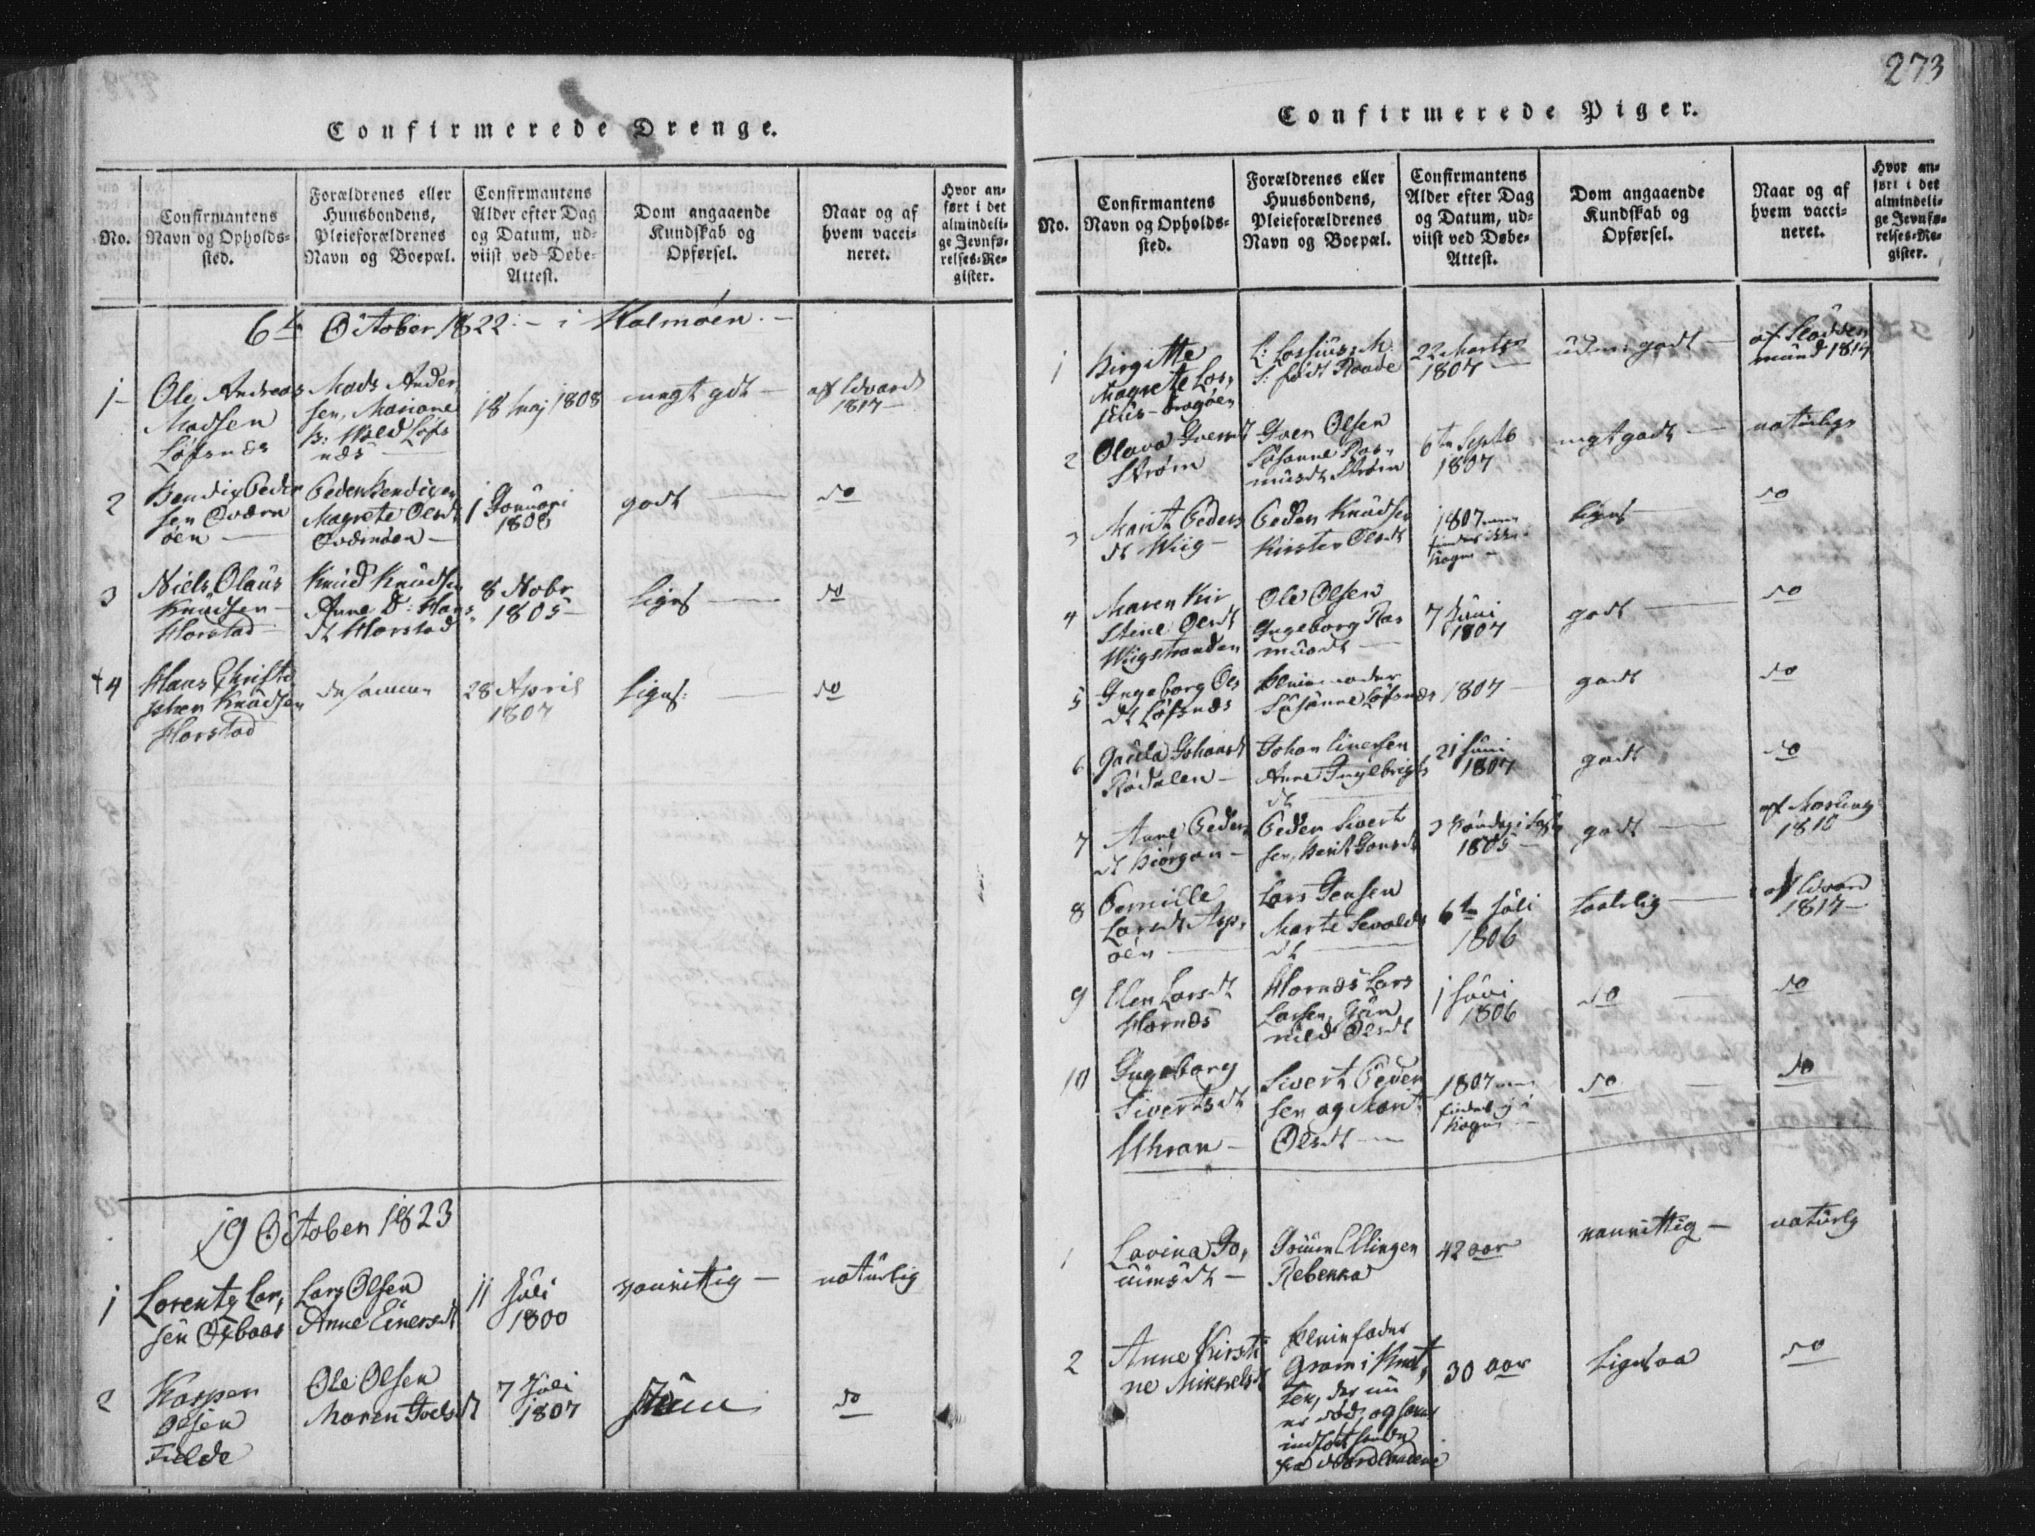 273
Confirmerede Drenge.
No.
Confirmantens
Navn og Opholds-
sted.
Forældrenes eller
Huusbondens,
Pleieforældrenes
Navn og Boepæl.
Confirmantens
Alder efter Dag
og Datum, ud-
viist ved Døbe-
Attest.
Dom angaaende
Kundskab og
Opførsel.
Naar og af
hvem vacci-
neret.
Hvor an-
ført i det
almindeli-
ge Jevnfø-
relses-Re-
gister.
6te October 1822 - i Kalmøen -
1
Ole Andreas
Madsen
Løfsnæs
Mads Ander,
sen, Mariane
B: Wold Løfs
næs
18 Maj 1808
megt gdt -
af Edvardt
1817 -
2
Bendix Peder
sen Qværn
øen
Peder Bendixen
Magrete Olsdt
Qværnøen -
1 Januari
1808
godt
do
3
Niels Olaus
Knudsen -
Harstad
Knud Knudsen
Anne D: Hans
dt Harstad
8 Nobr
1805 -
ligesaa
do
4
Hans Christo
pher Knudsen
Harstad
de samme
28 April
1807
liges:
do
19 October 1823
1
Lorentz Lar,
sen Oxbaas
Lars Olsen
Anne Einersdt
11 Juli
1800
vanvittig -
naturlig
2
Kasper
Olsen
Fielde
Ole Olsen
Maren Joelsdt
7 Juli
1807
do
Confirmerede Piger.
No.
Confirmantens
Navn og Opholds-
sted.
Forældrenes eller
Huusbondens,
Pleieforældrenes
Navn og Boepæl.
Confirmantens
Alder efter Dag
og Datum, ud-
viist ved Døbe-
Attest.
Dom angaaende
Kundskab og
Opførsel.
Naar og af
hvem vacci-
neret.
Hvor an-
ført i det
almindeli-
ge Jevnfø-
relses-Re-
gister.
1
Birgitte
Magrete Los,
sius -
L: Lossius, M.
S: født Raade
22 Marts
1807
udm: godt -
1814
2
Olava Iversdt
Strøm
Iver Olsen
Susanne Ras,
musdt Strøm
6te Septb
1807
megt godt -
naturlige
3
Marit Peders
dt Wiig -
Peder Knudsen
Kirsten Olsdt
1807 men
findes ikke i
Bogen -
liges
do
4
Maren Kir
stine Olsdt
Wiigstranden
Ole Olsen
Ingeborg Ras
musdt
7 Juni
1807
godt
do
5
Ingeborg Ols
dt Løfsnæs
Pleiemoder
Susanne Løfsnæs
1807 -
godt
do
6
Gaula Johansdt
Rødalen -
Johan Einersen
Anne Ingebrigts
dt
21 Juni
1807
godt
do
7
Anne Peders
dt Biørgan -
Peder Sivert
sen, Berit Jonsdt
1805
godt
1810
8
Pernille
Larsdt Asp,
øen
Lars Jensen
Marte Sevalds
dt
6te Juli
1806
taalelig
af Edvard
1817 -
9
Elen Larsdt
Hornæs
Hornæs Lars
Larsen, Gun
nild Olsdt
1 Juni
1806
do
do
10
Ingeborg
Sivertsdt
Uhran -
Sivert Peder
sen og Marit
Olsdt
1807 men
findes ej i
Bogen
do
do
1
Lovina Jo,
uimsdt -
Jouim Ellingen
Rebekka
42 aar
vanvittig -
naturlig
2
Anne Kirsti
ne Mikkelsdt
Pleiefader
Gram i Knut,
ten, der nu
er død, og som
indført hende
fra Nordlandene
30 aar
ligesaa
do